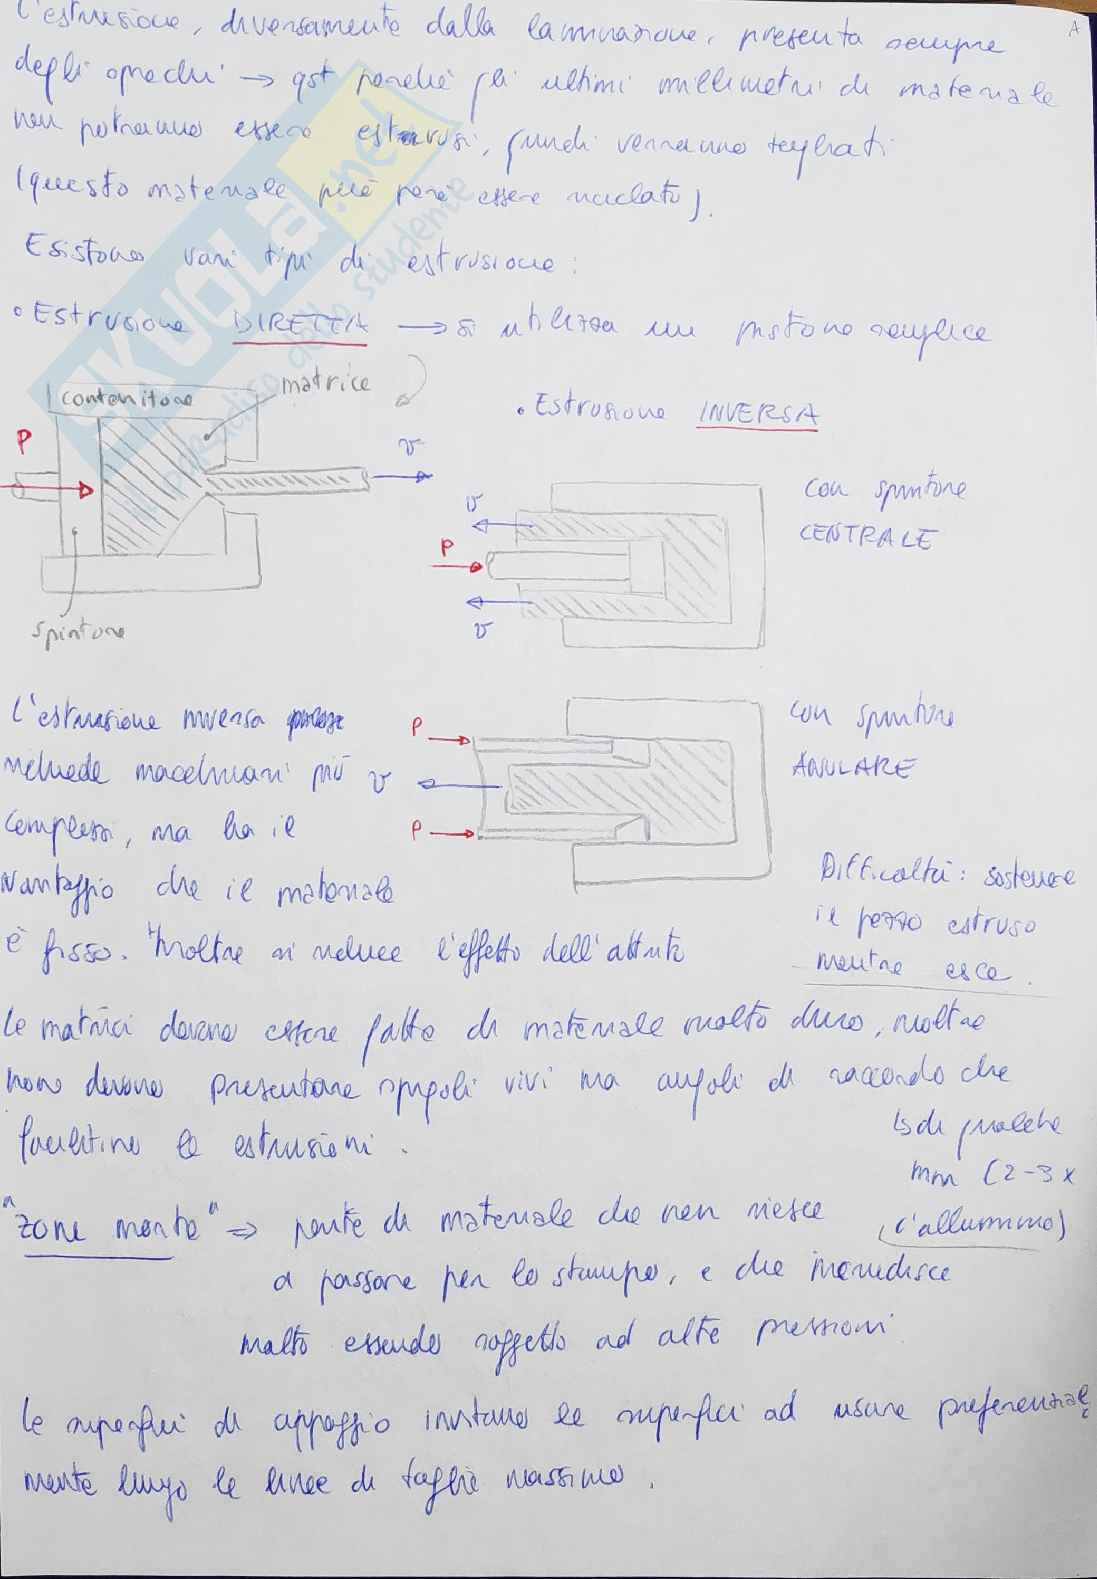 A
L'estrusione, diversamente dalla laminazione, presenta sempre
degli sprechi → qst perché gli ultimi millimetri di materiale
non potranno essere estrusi, quindi verranno tagliati
(questo materiale può però essere riciclato).
Esistono vari tipi di estrusione:
• Estrusione DIRETTA → si utilizza un pistone semplice
contenitore
matrice
P
v
spintore
• Estrusione INVERSA
con spintore
CENTRALE
v
P
v
L'estrusione inversa
richiede macchinari più
complessi, ma ha il
vantaggio che il materiale
è fisso. Inoltre si riduce l'effetto dell'attrito
P
v
P
con spintore
ANULARE
Difficoltà: sostenere
il pezzo estruso
mentre esce.
Le matrici devono essere fatte di materiale molto duro, inoltre
non devono presentare spigoli vivi ma angoli di raccordo che
facilitino le estrusioni.
↳ di qualche
mm (2-3 x
l'alluminio)
"zone morte" ⇒ parte di materiale che non riesce
a passare per lo stampo, e che incrudisce
molto essendo soggetto ad alte pressioni.
Le superfici di appoggio invitano le superfici ad usare preferenziale
mente lungo le linee di taglio massimo.
SKUOLA.net
il paradiso dello studente